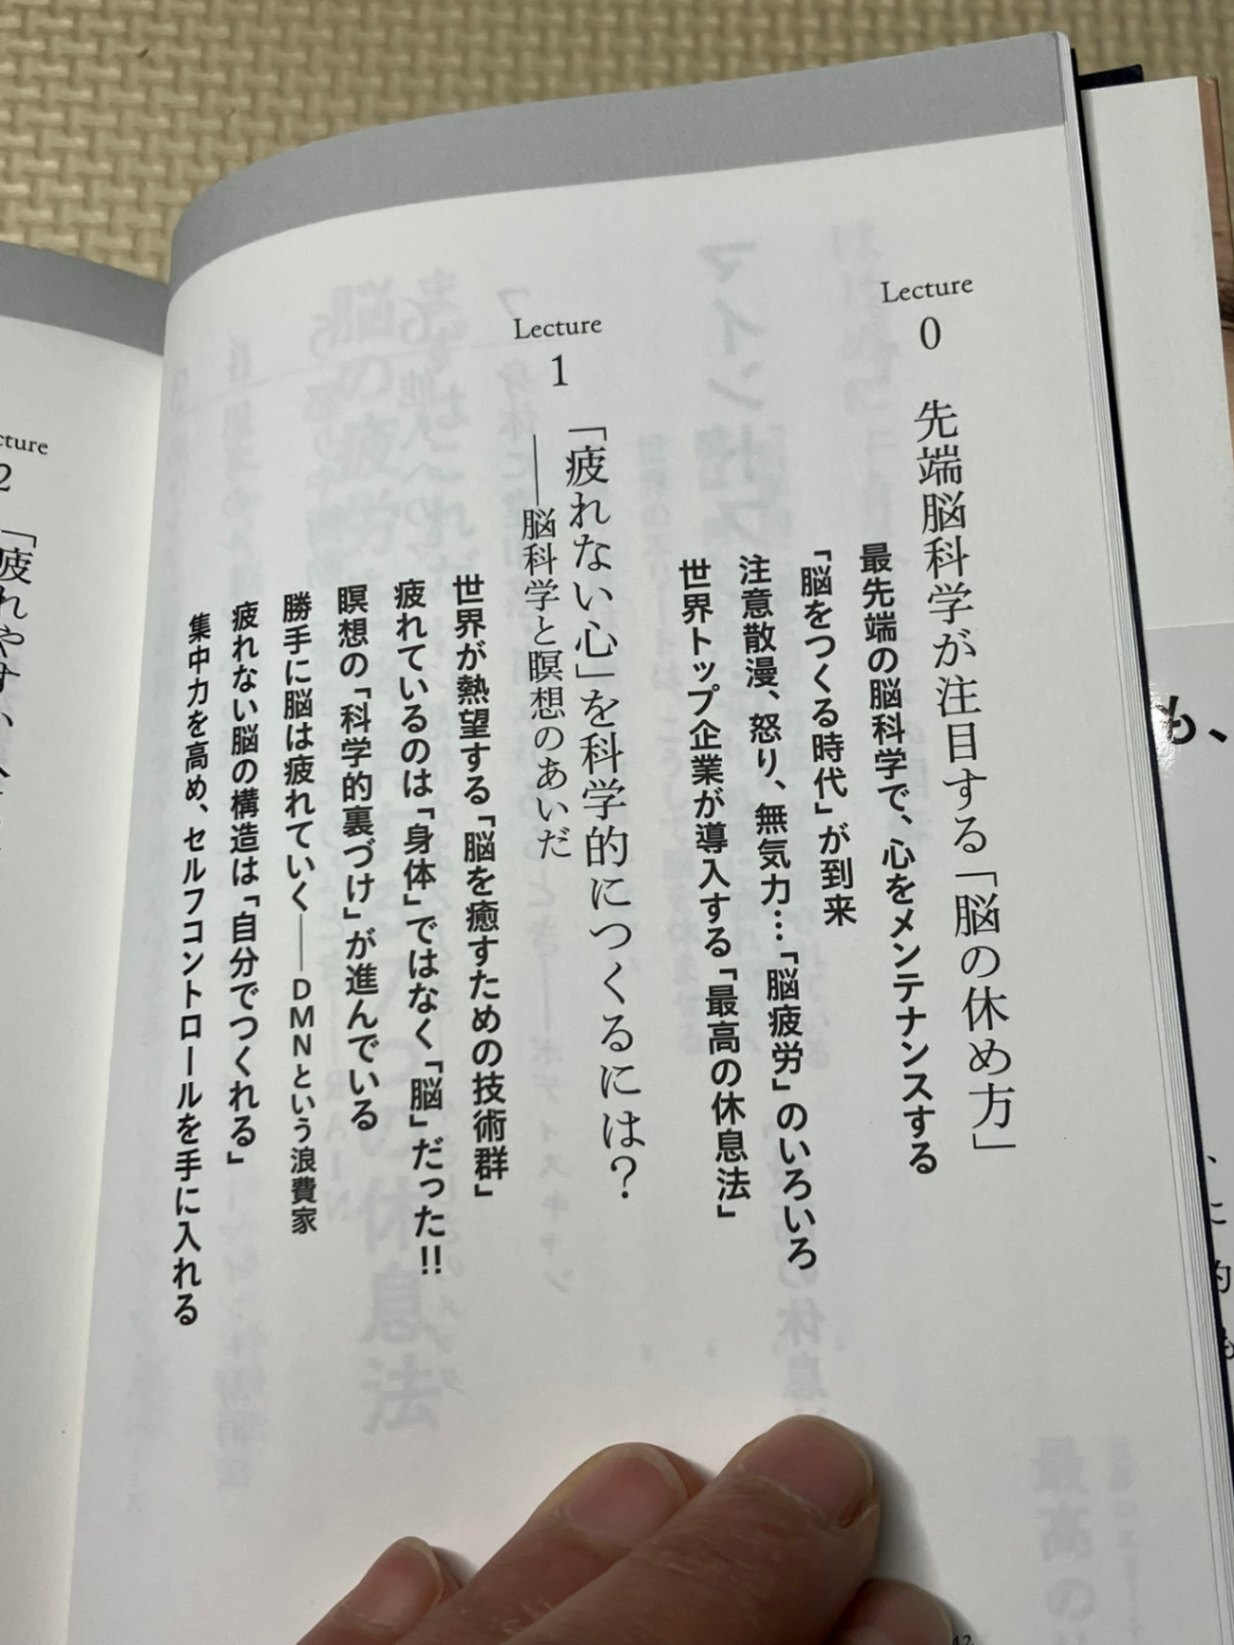 Lecture
0
先端脳科学が注目する「脳の休め方」
最先端の脳科学で、心をメンテナンスする
「脳をつくる時代」が到来
注意散漫、怒り、無気力…「脳疲労」のいろいろ
世界トップ企業が導入する「最高の休息法」
Lecture
1
「疲れない心」を科学的につくるには?
——脳科学と瞑想のあいだ
世界が熱望する「脳を癒すための技術群」
疲れているのは「身体」ではなく「脳」だった!!
瞑想の「科学的裏づけ」が進んでいる
勝手に脳は疲れていく——DMNという浪費家
疲れない脳の構造は「自分でつくれる」
集中力を高め、セルフコントロールを手に入れる
cture
2
「疲れやすい
も、